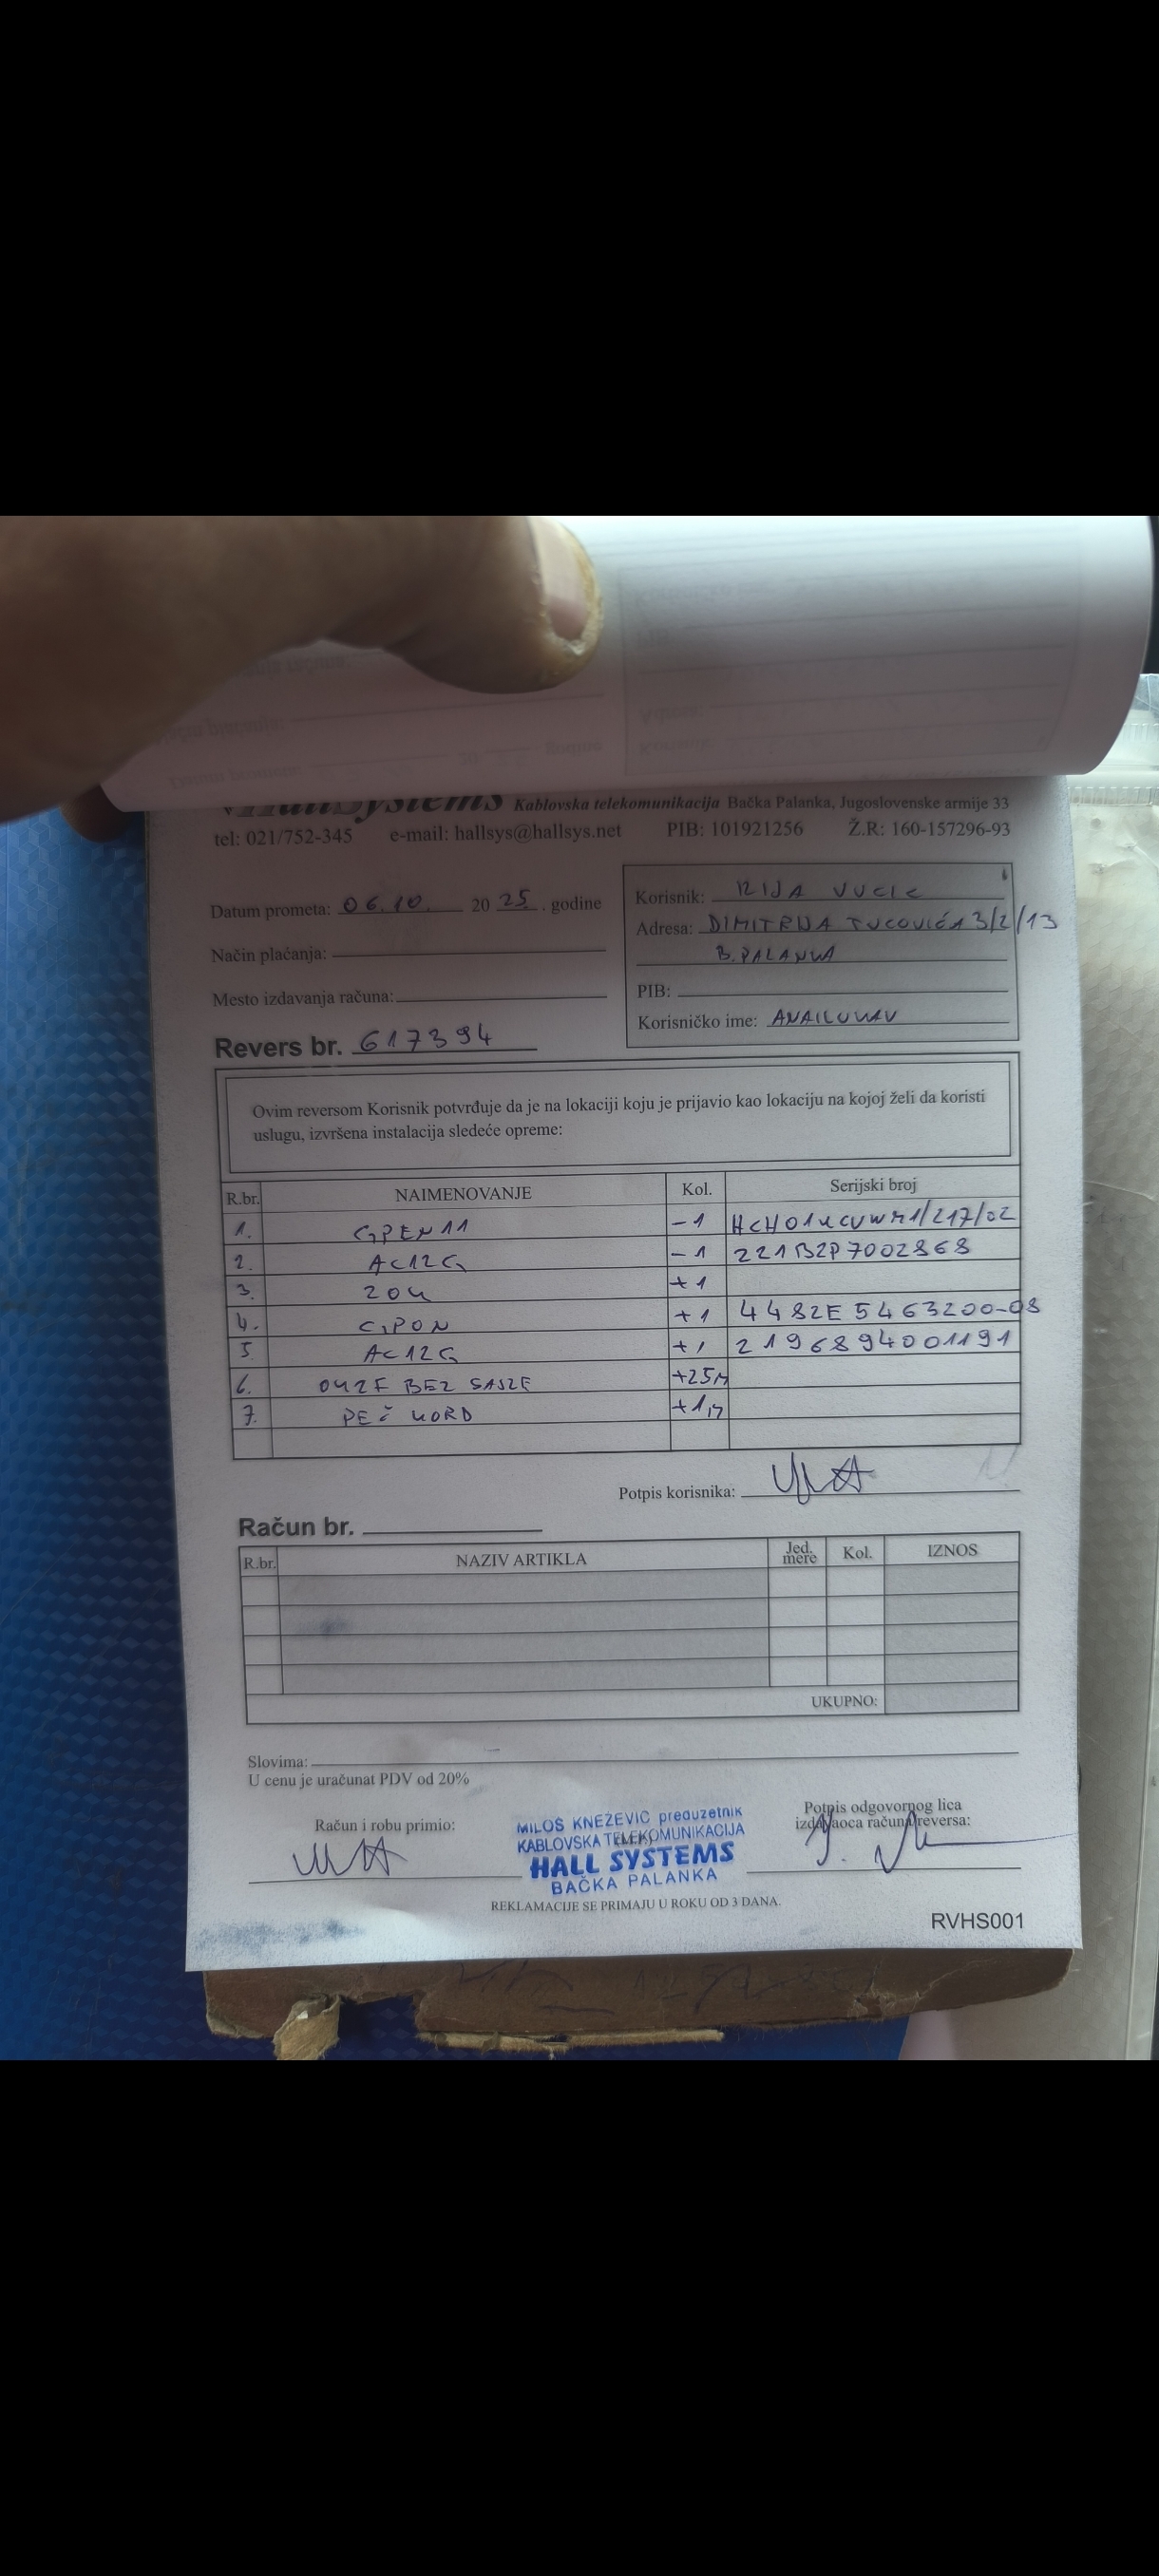 HallSystems Kablovska telekomunikacija Bačka Palanka, Jugoslovenske armije 33
tel: 021/752-345 e-mail: hallsys@hallsys.net PIB: 101921256 Ž.R: 160-157296-93
Datum prometa: 06.10. 20 25 . godine
Način plaćanja:
Mesto izdavanja računa:
Revers br. 617394
Korisnik: VUCIC
Adresa: DIMITRIJA TUCOVIĆA 3/2/13
B. PALANKA
PIB:
Korisničko ime:
Ovim reversom Korisnik potvrđuje da je na lokaciji koju je prijavio kao lokaciju na kojoj želi da koristi
uslugu, izvršena instalacija sledeće opreme:
R.br. NAIMENOVANJE Kol. Serijski broj
1. GPEN11 -1
2. AC12G -1 221B2P7002868
3. +1
4. GPON +1 4482E5463200-08
5. AC12G +1 2196894001191
6. BEZ SAJLE +25M
7. KORD +1
Potpis korisnika:
Račun br.
R.br. NAZIV ARTIKLA Jed. mere Kol. IZNOS
UKUPNO:
Slovima:
U cenu je uračunat PDV od 20%
Račun i robu primio:
MILOŠ KNEŽEVIĆ preduzetnik
KABLOVSKA TELEKOMUNIKACIJA
HALL SYSTEMS
BAČKA PALANKA
Potpis odgovornog lica
izdavaoca računa/reversa:
REKLAMACIJE SE PRIMAJU U ROKU OD 3 DANA.
RVHS001